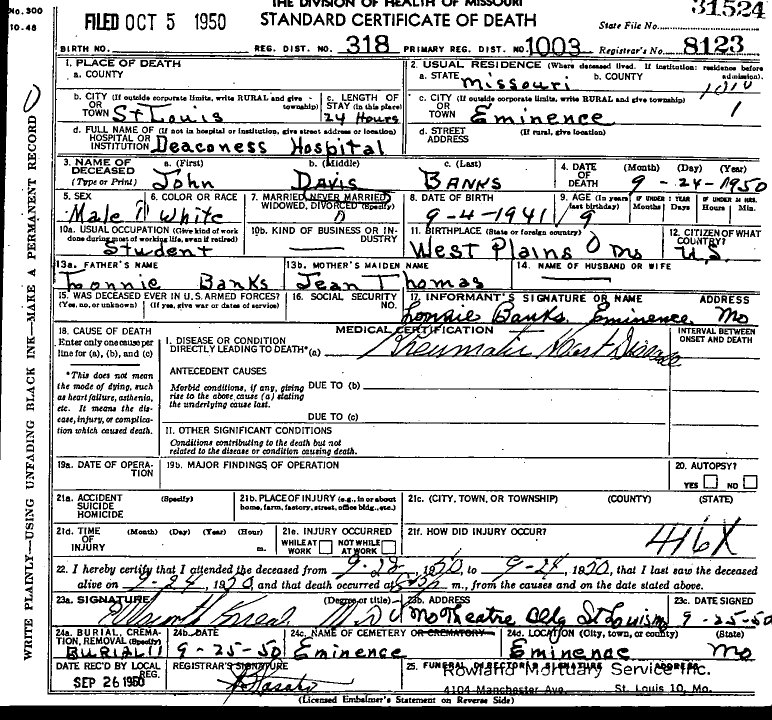 No. 300
10-48
THE DIVISION OF HEALTH OF MISSOURI
FILED OCT 5 1950 STANDARD CERTIFICATE OF DEATH
31524
State File No.
BIRTH NO. REG. DIST. NO. 318 PRIMARY REG. DIST. NO. 1003 Registrar's No. 8123
WRITE PLAINLY—USING UNFADING BLACK INK—MAKE A PERMANENT RECORD
1. PLACE OF DEATH
a. COUNTY
2. USUAL RESIDENCE (Where deceased lived. If institution: residence before admission).
a. STATE Missouri b. COUNTY
b. CITY (If outside corporate limits, write RURAL and give township)
OR
TOWN St Louis
c. LENGTH OF
STAY (in this place)
24 Hours
c. CITY (If outside corporate limits, write RURAL and give township)
OR
TOWN Eminence
d. FULL NAME OF (If not in hospital or institution, give street address or location)
HOSPITAL OR
INSTITUTION Deaconess Hospital
d. STREET (If rural, give location)
ADDRESS
3. NAME OF
DECEASED
(Type or Print)
a. (First) b. (Middle) c. (Last)
John Davis Banks
4. DATE
OF
DEATH
(Month) (Day) (Year)
9-24-1950
5. SEX
Male
6. COLOR OR RACE
White
7. MARRIED, NEVER MARRIED,
WIDOWED, DIVORCED (Specify)
8. DATE OF BIRTH
9-4-1941
9. AGE (In years last birthday)
9
IF UNDER 1 YEAR
Months Days
IF UNDER 24 HRS.
Hours Min.
10a. USUAL OCCUPATION (Give kind of work
done during most of working life, even if retired)
Student
10b. KIND OF BUSINESS OR INDUSTRY
11. BIRTHPLACE (State or foreign country)
West Plains Mo
12. CITIZEN OF WHAT
COUNTRY?
U.S.
13a. FATHER'S NAME
Lonnie Banks
13b. MOTHER'S MAIDEN NAME
Jean Thomas
14. NAME OF HUSBAND OR WIFE
15. WAS DECEASED EVER IN U.S. ARMED FORCES?
(Yes, no, or unknown) (If yes, give war or dates of service)
16. SOCIAL SECURITY
NO.
17. INFORMANT'S SIGNATURE OR NAME ADDRESS
Lonnie Banks, Eminence Mo
18. CAUSE OF DEATH
Enter only one cause per
line for (a), (b), and (c)
*This does not mean
the mode of dying, such
as heart failure, asthenia,
etc. It means the dis-
ease, injury, or complica-
tion which caused death.
MEDICAL CERTIFICATION
INTERVAL BETWEEN
ONSET AND DEATH
I. DISEASE OR CONDITION
DIRECTLY LEADING TO DEATH*(a) Rheumatic Heart Disease
ANTECEDENT CAUSES
Morbid conditions, if any, giving DUE TO (b)
rise to the above cause (a) stating
the underlying cause last.
DUE TO (c)
II. OTHER SIGNIFICANT CONDITIONS
Conditions contributing to the death but not
related to the disease or condition causing death.
19a. DATE OF OPERA-
TION
19b. MAJOR FINDINGS OF OPERATION
20. AUTOPSY?
YES NO
21a. ACCIDENT (Specify)
SUICIDE
HOMICIDE
21b. PLACE OF INJURY (e.g., in or about
home, farm, factory, street, office bldg., etc.)
21c. (CITY, TOWN, OR TOWNSHIP) (COUNTY) (STATE)
21d. TIME (Month) (Day) (Year) (Hour)
OF
INJURY m.
21e. INJURY OCCURRED
WHILE AT WORK NOT WHILE AT WORK
21f. HOW DID INJURY OCCUR?
416X
22. I hereby certify that I attended the deceased from 1950, to 9-24, 1950, that I last saw the deceased
alive on 9-24, 1950, and that death occurred at m., from the causes and on the date stated above.
23a. SIGNATURE (Degree or title)
23b. ADDRESS
Mo Theatre Bldg St Louis Mo
23c. DATE SIGNED
9-25-50
24a. BURIAL, CREMA-
TION, REMOVAL (Specify)
Burial
24b. DATE
9-25-50
24c. NAME OF CEMETERY OR CREMATORY
Eminence
24d. LOCATION (City, town, or county) (State)
Eminence Mo
DATE REC'D BY LOCAL
REG.
SEP 26 1950
REGISTRAR'S SIGNATURE
25. FUNERAL DIRECTOR'S SIGNATURE ADDRESS
Rowland Mortuary Service Inc.
4104 Manchester Ave. St. Louis 10, Mo.
(Licensed Embalmer's Statement on Reverse Side)